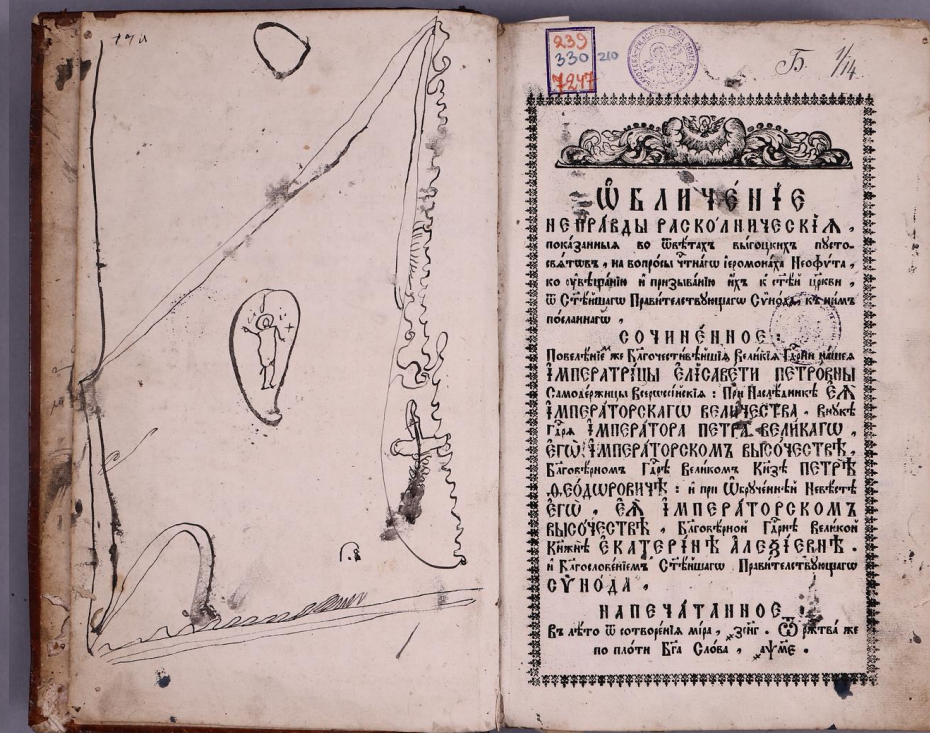 239
330 210
7247
Б. 1/14
Ѡ҆БЛИЧЕ́НЇЕ
НЕПРА́ВДЫ РАСКО́ЛНИЧЕСКЇѦ,
пока́занныѧ во ѿвѣ́тахъ вы́гоцкихъ пусто-
свѧ́тѡвъ, на вопро́сы че҃тна́гѡ і҆еромона́ха Неофѵ́та,
ко ᲂу҆вѣща́нїю и҆ призыва́нїю и҆́хъ к̾ ст҃ѣ́й цр҃кви,
ѿ Ст҃ѣ́йшагѡ Прави́телствующагѡ Сѵно́да, къ ни̑мъ
по́сланнагѡ,
СОЧИНЕ́ННОЕ.
Повелѣ́нїемъ же Бл҃гочести́вѣйшїѧ Вели́кїѧ Гд҃рни на́шеѧ
І҆МПЕРАТРИ́ЦЫ Е҆ЛІСАВЕ́ТИ ПЕТРО́ВНЫ
Самоде́ржицы Всеросси́йскїѧ: При Наслѣ́дникѣ Е҆Ѧ̀
І҆МПЕРА́ТОРСКАГѠ ВЕЛИ́ЧЕСТВА, Вну́кѣ
Гд҃рѧ І҆МПЕРА́ТОРА ПЕТРА̀ ВЕЛИ́КАГѠ,
Е҆ГѠ̀ І҆МПЕРА́ТОРСКОМЪ ВЫСО́ЧЕСТВѢ,
Бл҃говѣ́рномъ Гд҃рѣ Вели́комъ Кн҃зѣ ПЕТРѢ̀
Ѳ҆ЕО́ДѠРОВИЧѢ: и҆ при Ѡ҆бруче́ннѣй Невѣ́стѣ
Е҆ГѠ̀, Е҆Ѧ̀ І҆МПЕРА́ТОРСКОМЪ
ВЫСО́ЧЕСТВѢ, Бл҃говѣ́рной Гд҃рнѣ Вели́кой
Кнѧжнѣ̀ Е҆КАТЕРИ́НѢ А҆ЛЕѮІ́ЕВНѢ.
и҆ Бл҃гослове́нїемъ Ст҃ѣ́йшагѡ Прави́телствующагѡ
СѴНО́ДА,
НАПЕЧА́ТАННОЕ,
Въ лѣ́то ѿ сотворе́нїѧ мі́ра, ҂зсн҃г. Ѿ рж҃тва́ же
по пло́ти Бг҃а Сло́ва, ҂аѱм҃е.